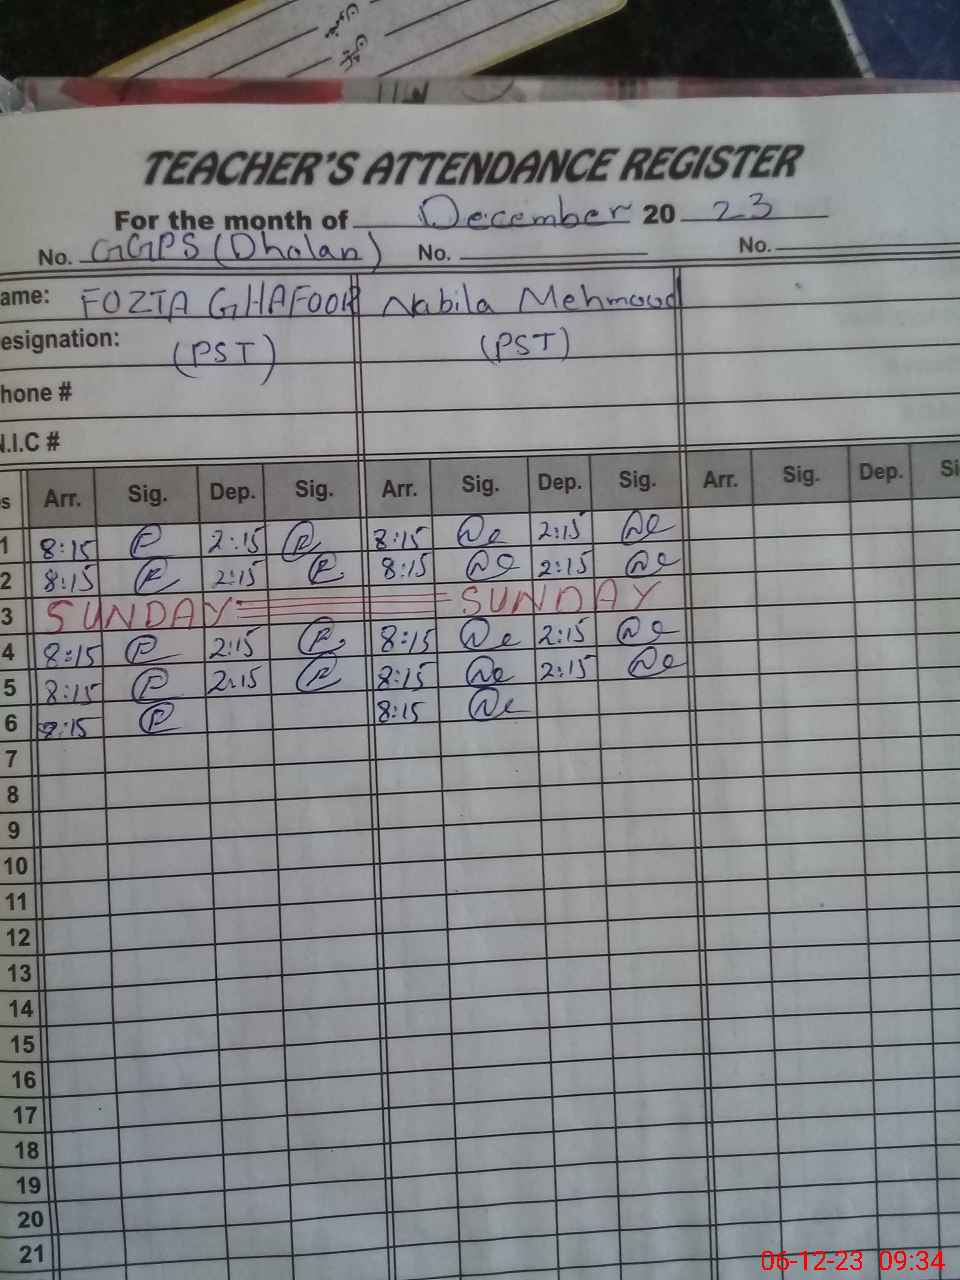 TEACHER'S ATTENDANCE REGISTER
For the month of December 20 23
No. GGPS (Dhalan) No. No.
ame: FOZIA GHAFOOR Nabila Mehmood
esignation: (PST) (PST)
hone #
N.I.C #
s Arr. Sig. Dep. Sig. Arr. Sig. Dep. Sig. Arr. Sig. Dep. Si
1 8:15 2:15 8:15 2:15
2 8:15 2:15 8:15 2:15
3 SUNDAY SUNDAY
4 8:15 2:15 8:15 2:15
5 8:15 2:15 8:15 2:15
6 8:15 8:15
7
8
9
10
11
12
13
14
15
16
17
18
19
20
21
06-12-23 09:34